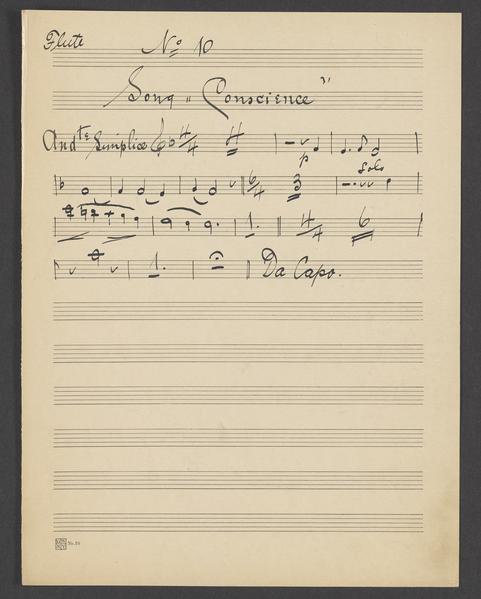 Flute No 10
Song „ Conscience "
Andte Simplice 4/4 4 p
Solo
6/4 3
1. 4/4 6
1. Da Capo.
No. 10